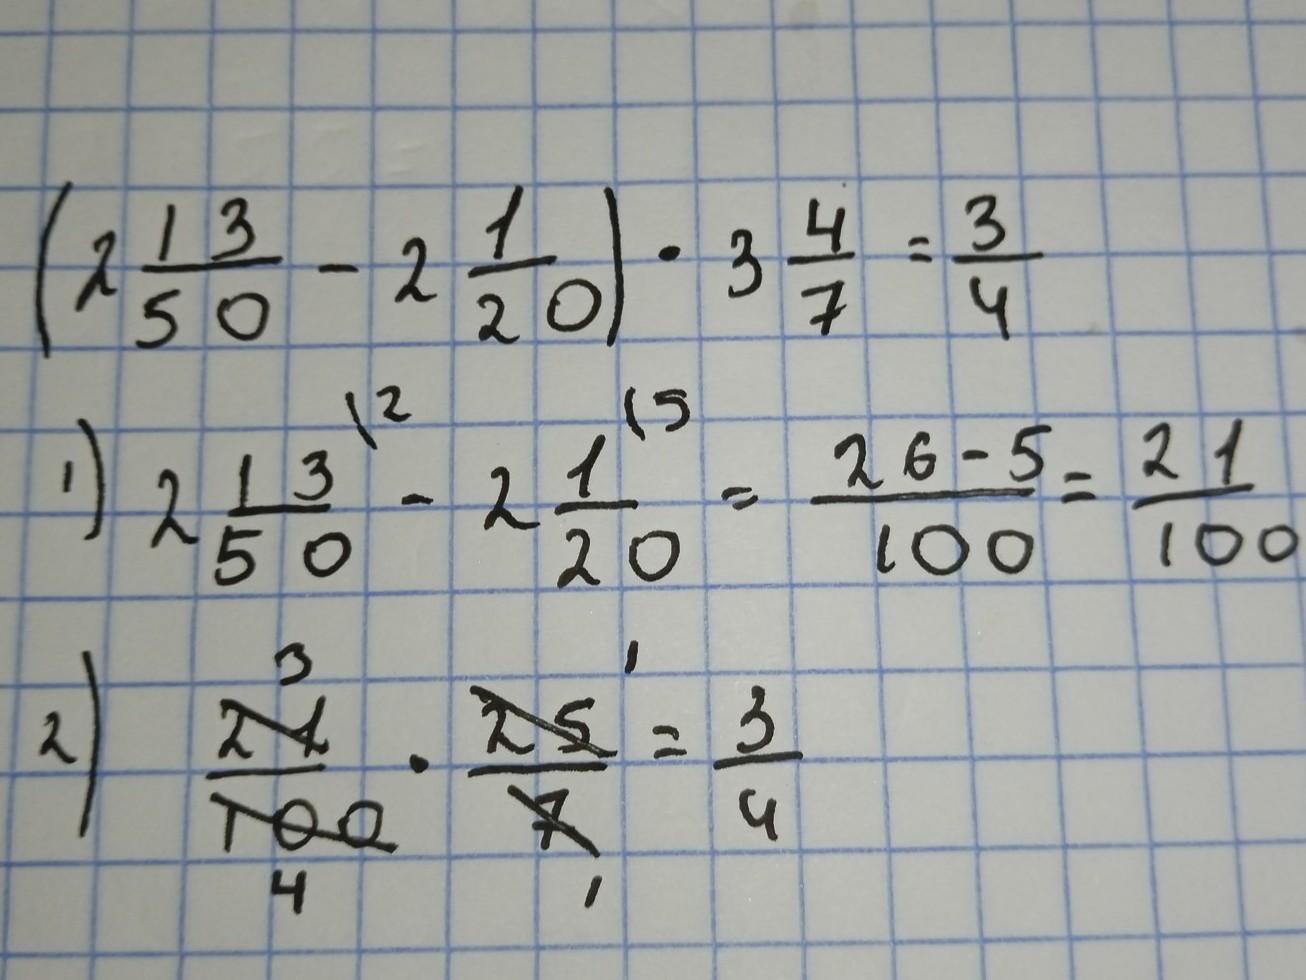 (2 13/50 - 2 1/20) · 3 4/7 = 3/4
1) 2 13/50 \2 - 2 1/20 \5 = 26-5/100 = 21/100
2) 21/100 · 25/7 = 3/4
3 1
4 1